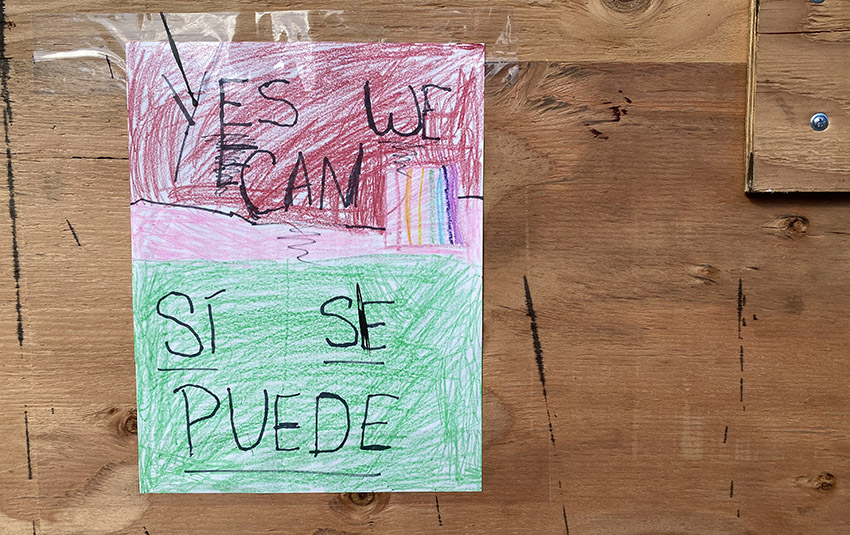 YES WE
CAN
SÍ SE
PUEDE